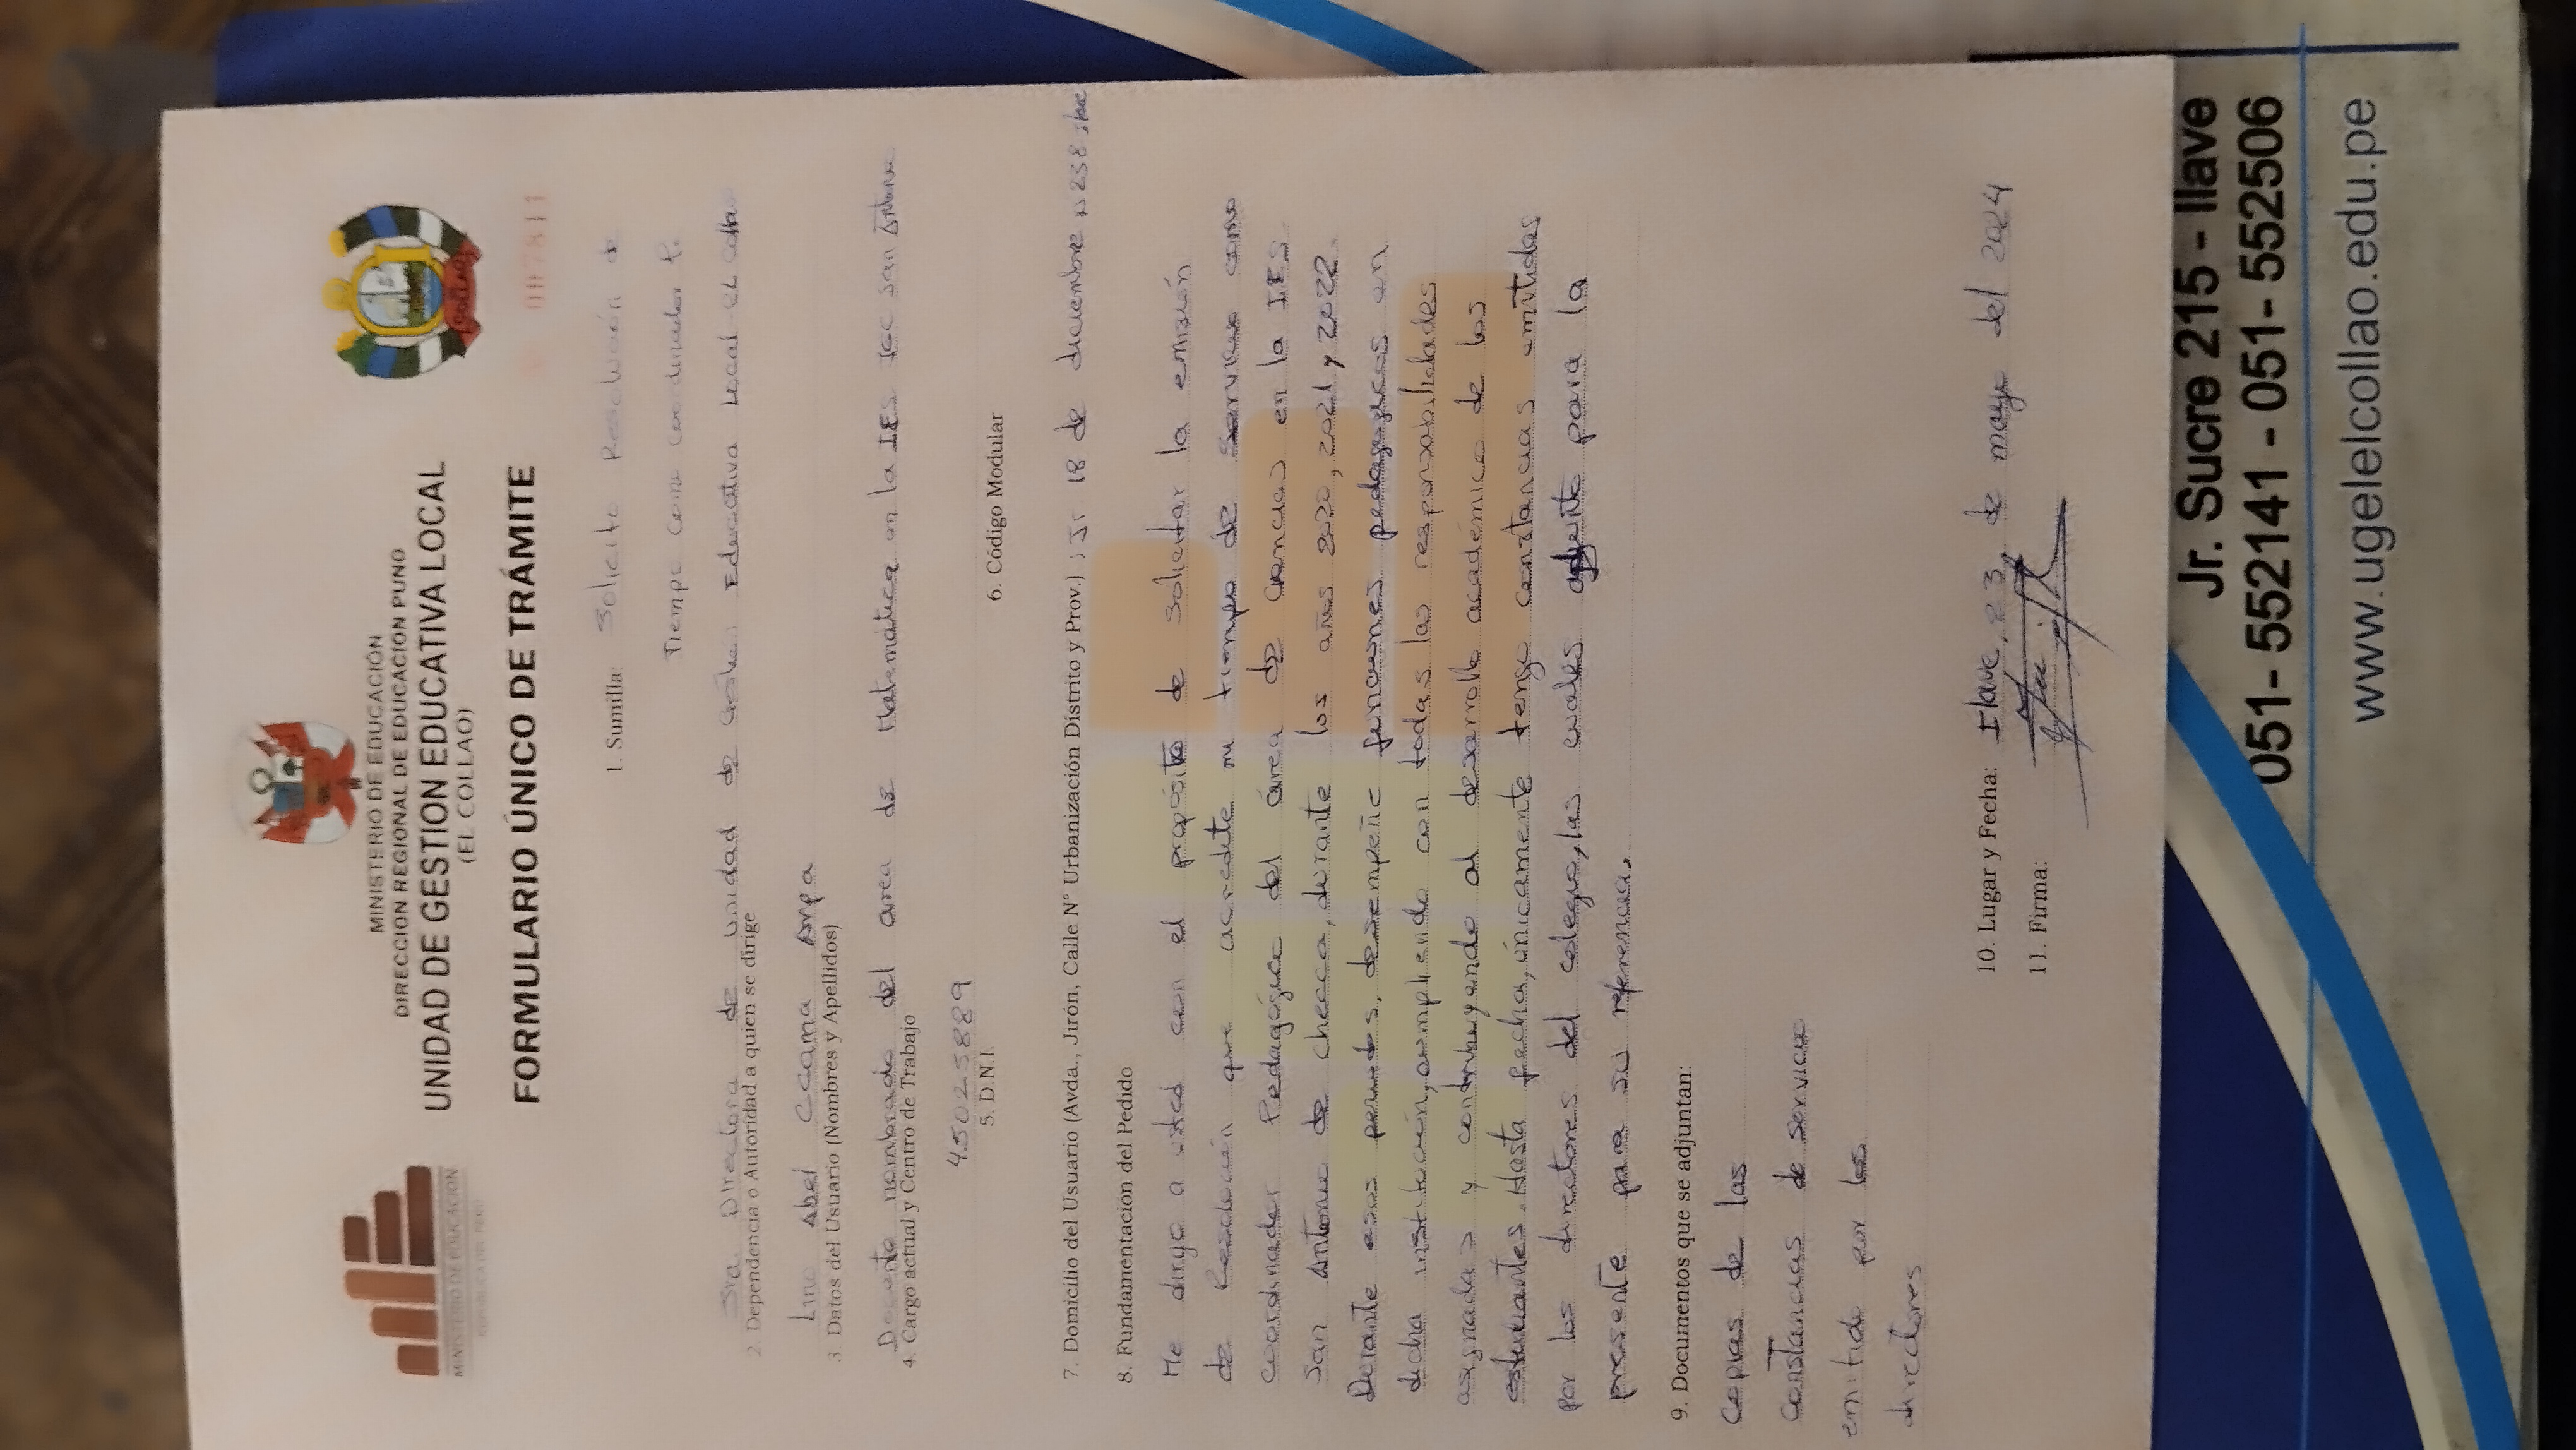 MINISTERIO DE EDUCACIÓN
REPUBLICA DEL PERU
MINISTERIO DE EDUCACIÓN
DIRECCION REGIONAL DE EDUCACION PUNO
UNIDAD DE GESTION EDUCATIVA LOCAL
(EL COLLAO)
COLLAO
FORMULARIO ÚNICO DE TRÁMITE
007811
1. Sumilla: Solicito Resolución de
Tiempo como coordinador P.
Sra Directora de Unidad de Gestión Educativa Local el collao
2. Dependencia o Autoridad a quien se dirige
Lino Abel Ccama Ampa
3. Datos del Usuario (Nombres y Apellidos)
Docente nombrado del area de Matemática en la IES JEC San Antonio
4. Cargo actual y Centro de Trabajo
45025889
5. D.N.I
6. Código Modular
7. Domicilio del Usuario (Avda., Jirón, Calle N° Urbanización Distrito y Prov.) ; Jr 18 de diciembre N 238 Ilave
8. Fundamentación del Pedido
Me dirijo a usted con el propósito de solicitar la emisión
de Resolución que acredite mi tiempo de servicio como
coordinador Pedagógico del área de ciencias en la IES.
San Antonio de checca, durante los años 2020, 2021 y 2022.
Durante esos periodos, desempeñe funciones pedagogicas en
dicha institución, cumpliendo con todas las responsabilidades
asignadas y contribuyendo al desarrollo académico de los
estudiantes. Hasta fecha, únicamente tengo constancias emitidas
por los directores del colegio, las cuales adjunto para la
presente para su referencia.
9. Documentos que se adjuntan:
Copias de las
constancias de servicio
emitido por los
directores
10. Lugar y Fecha: Ilave, 23 de mayo del 2024
11. Firma:
Jr. Sucre 215 - Ilave
051- 552141 - 051- 552506
www.ugelelcollao.edu.pe